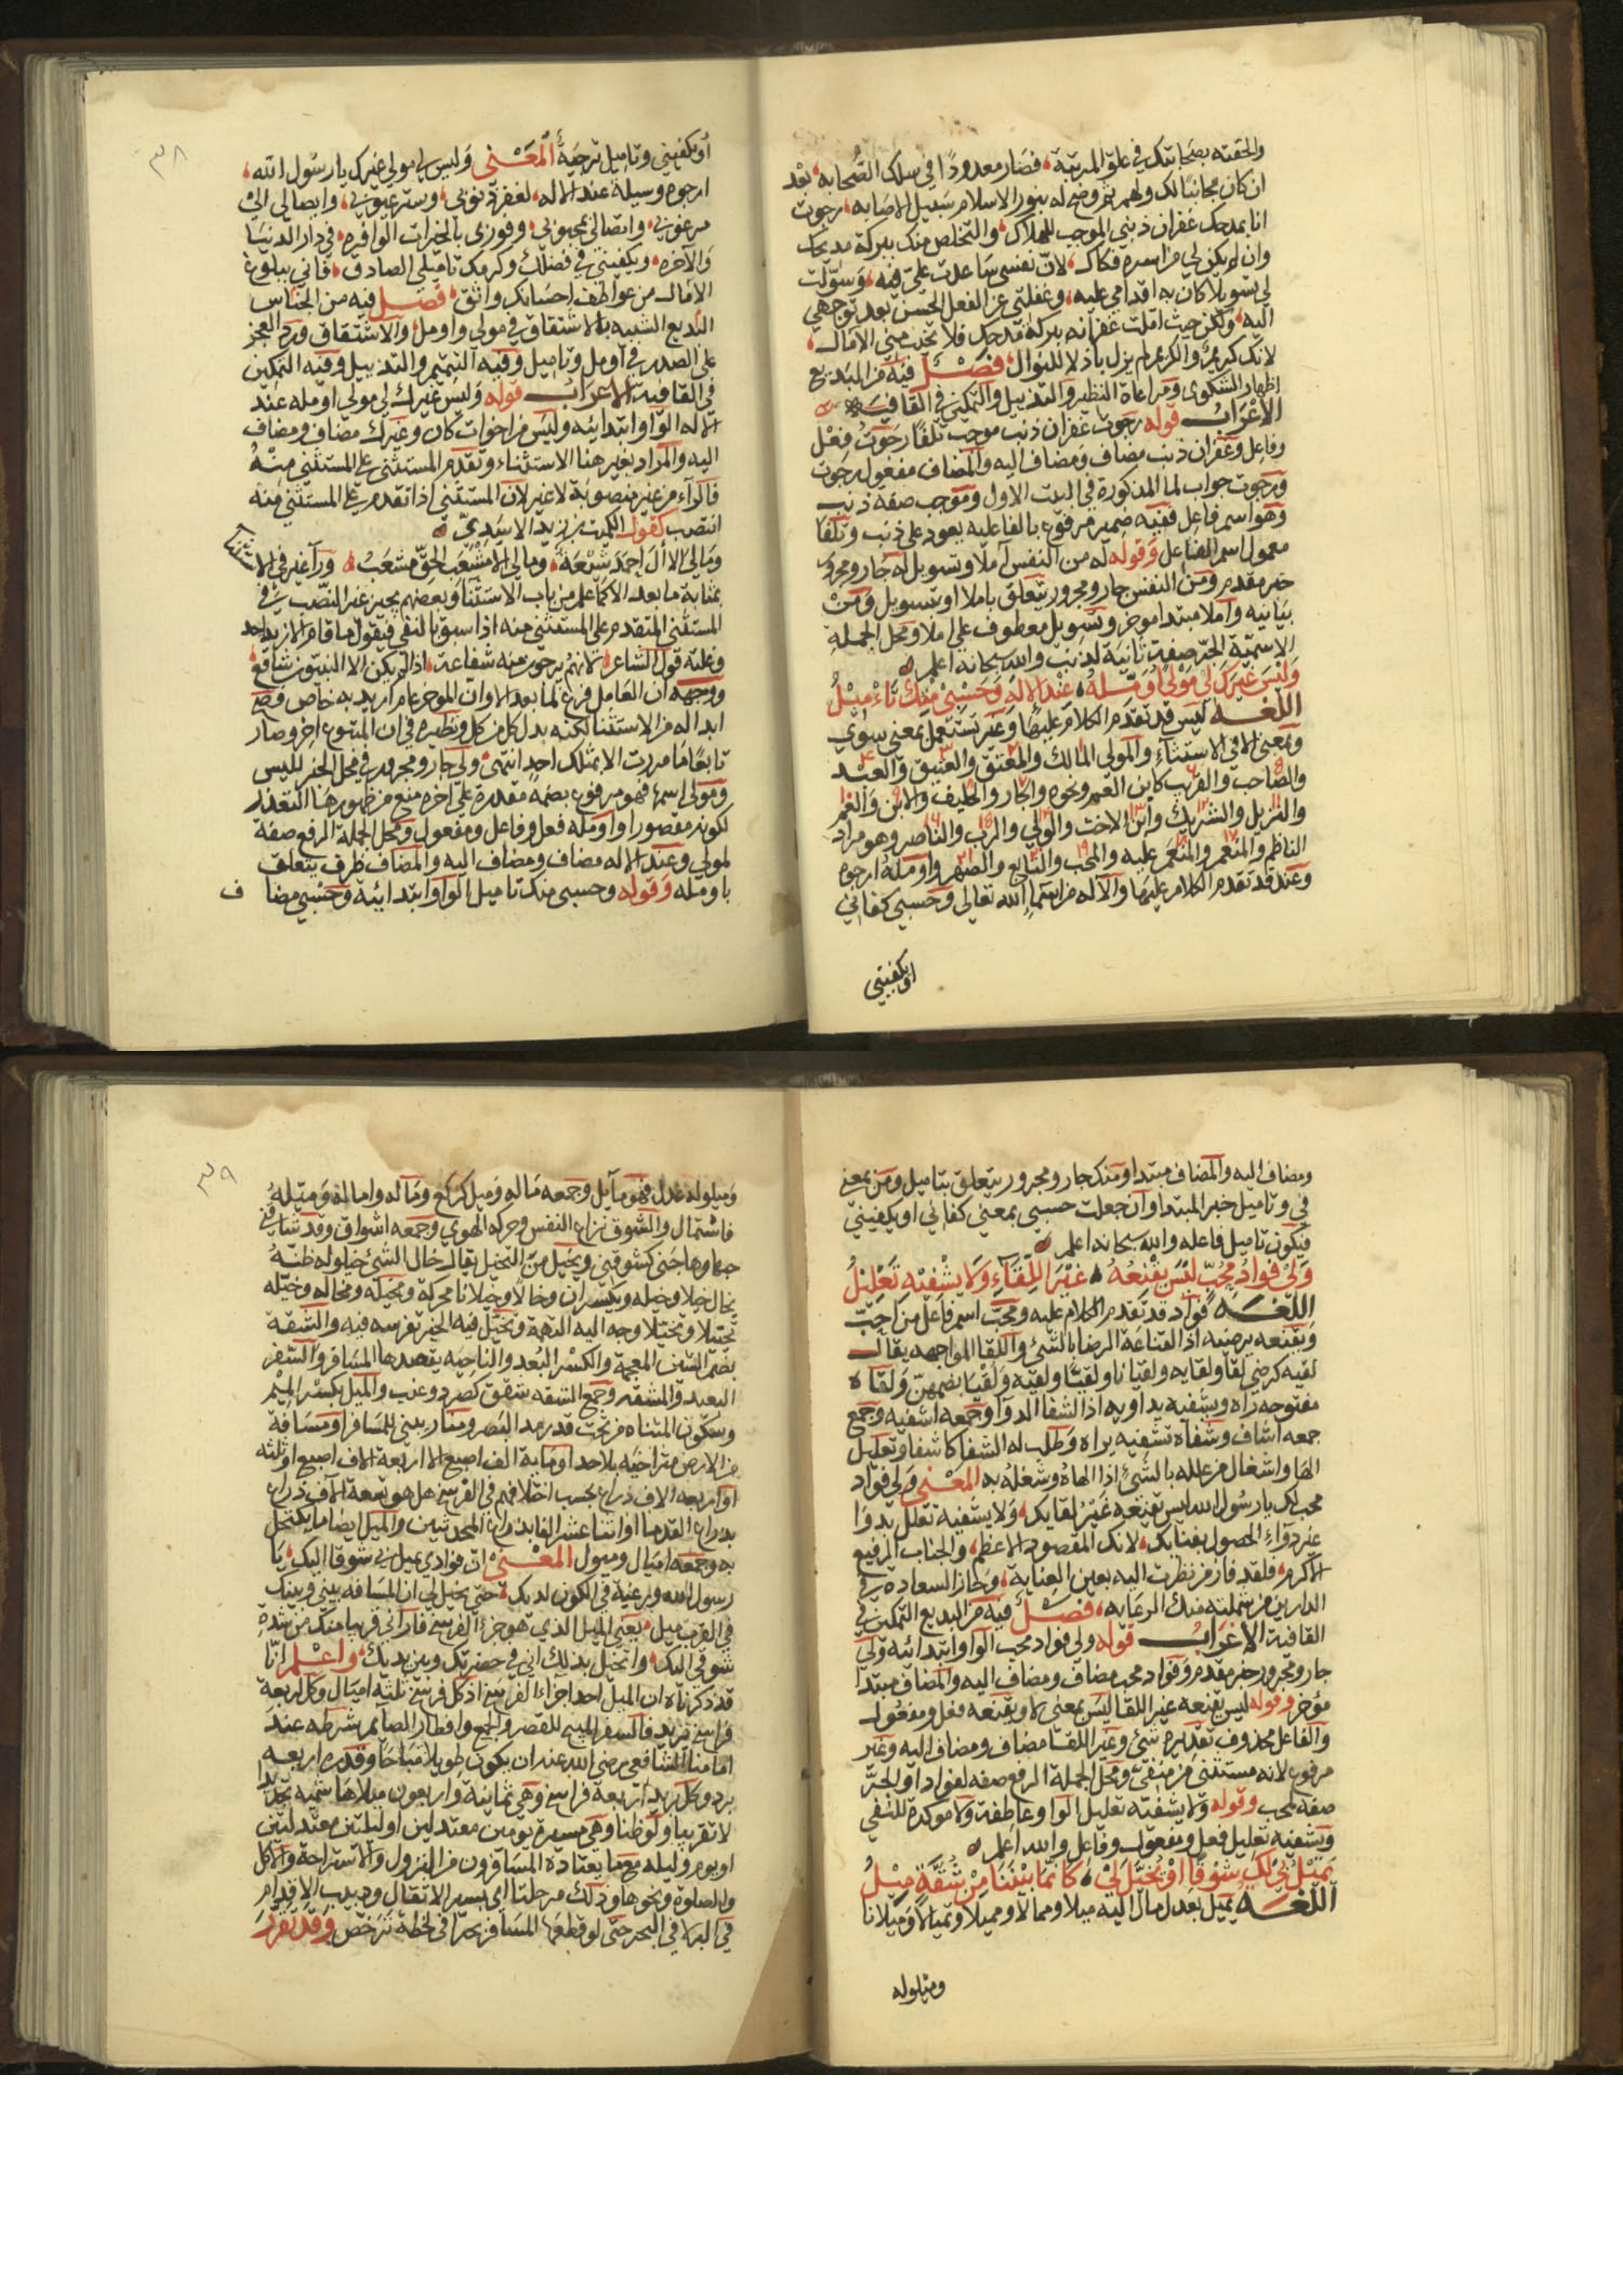 والحقته بصحابتك في علو المرتبة، فصار معدودا في سلك الصحابه، بعد
ان كان مجانبا لك ولهم بوضح له بنور الاسلام سبيل الاصابه، رجوت
انا بمدحك غفران ذنبي الموجب للهلاك، والتخلص منك ببركة مديحك
وان لم يكن لي من اسره فكاك، لان نفسي ساعدت علي فيه، وسولت
لي تسويلا كان به اقدامي عليه، وغفلتي عن الفعل الحسن بعد توجهي
اليه، ولكن حيث املت غفرانه ببركة مدحك فلا تخيب مني الامال،
لانك كريم والكريم لم يزل باذلا للنوال، فصل فيه من البديع
اظهار الشكوى ومراعاة النظير والتذييل والتمكين في القافيه
الاعراب قوله رجوت غفران ذنب موجب تلفا رجوت فعل
وفاعل وغفران ذنب مضاف ومضاف اليه والمضاف مفعول رجوت
ورجوت جواب لما المذكورة في البيت الاول وموجب صفة ذنب
وهو اسم فاعل ففيه ضمير مرفوع بالفاعليه يعود على ذنب وتلفا
معمول اسم الفاعل وقوله له من النفس املا وتسويل له جار ومجرور
خبر مقدم ومن النفس جار ومجرور يتعلق باملا او تسويل ومن
بيانيه واملا مبتدا موخر وتسويل معطوف على املا ومحل الجملة
الاسمية الجر صفة ثانية لذنب والله سبحانه اعلم
وليس غيرك لي مولى اومله، عند الاله وحسبي منك تاميل
اللغه ليس قد تقدم الكلام عليها وغير تستعمل بمعنى سوى
وبمعنى الا في الاستثناء والمولى المالك والمعتق والعتيق والعبد
والصاحب والقريب كابن العم ونحوه والجار والحليف والابن والعم
والنزيل والشريك وابن الاخت والولي والرب والناصر وهو مراد
الناظم والمنعم والمنعم عليه والمحب والتابع والصهر واومله ارجوه
وعند قد تقدم الكلام عليها والاله من اسماء الله تعالى وحسبي كفاني
او يكفيني
٣٨
او يكفيني وتاميل ترجية المعنى وليس لي مولى غيرك يا رسول الله،
ارجوه وسيلة عند الاله، لغفرة ذنوبي، وستر عيوبي، وايصالي الى
مرغوبي، واتصالي بمحبوبي، وفوزي بالخيرات الوافره، في دار الدنيا
والاخره، ويكفيني في فضلك وكرمك تاميلي الصادق، فاني ببلوغ
الامال من عواطف احسانك واثق، فصل فيه من الجناس
البديع الشبيه بالاشتقاق في مولى واومل، والاشتقاق ورد العجز
على الصدر في اومل وتاميل وفيه التتميم والتذييل وفيه التمكين
في القافيه الاعراب قوله وليس غيرك لي مولى اومله عند
الاله الواو ابتدائيه وليس من اخوات كان وغيرك مضاف ومضاف
اليه والمراد بغير هنا الاستثناء وتقدم المستثنى على المستثنى منه
فالراء من غير منصوبة لا غير لان المستثنى اذا تقدم على المستثنى منه
انتصب كقول الكميت بن زيد الاسدي
ومالي الا ال احمد شيعة، ومالي الا مشعب الحق مشعب، ورا غير في الا
بمثابة ما بعد الا كما علم من باب الاستثنا وبعضهم يجيز غير النصب في
المستثنى المتقدم على المستثنى منه اذا سبق بالنفي فيقول ما قام الا زيد احد
وعليه قول الشاعر، لانهم يرجون منه شفاعة، اذا لم يكن الا النبيون شافع،
ووجهه ان العامل فرغ لما بعد الا وان الموخر عام اريد به خاص فصح
ابداله من الاستثنا لكنه بدل كل من كل ونظيره في ان المتبوع اخر وصار
تابعا ما مررت الا بمثلك احد انتهى ولي جار ومجرور في محل الخبر لليس
ومولى اسمها فهو مرفوع بضمة مقدرة على اخره منع من ظهورها التعذر
لكونه مقصورا واومله فعل وفاعل ومفعول ومحل الجملة الرفع صفة
لمولى وعند الاله مضاف ومضاف اليه والمضاف ظرف يتعلق
باومله وقوله وحسبي منك تاميل الواو ابتدائية وحسبي مضاف
ومضاف اليه والمضاف مبتدا ومنك جار ومجرور يتعلق بتاميل ومن بمعنى
في وتاميل خبر المبتدا وان جعلت حسبي بمعنى كفاني او يكفيني
فيكون تاميل فاعله والله سبحانه اعلم
ولي فواد محب ليس يقنعه، غير اللقاء ولا يشفيه تعليل
اللغه فواد قد تقدم الكلام عليه ومحب اسم فاعل من احب
ويقنعه يرضيه اذ القناعة الرضا بالشئ واللقا المواجهه يقال
لقيه كرضي لقا ولقايه ولقيانا ولقيا ولقيه ولقيا بضمهن ولقاة
مفتوحه راه ويشفيه يداويه اذ الشفا الدوا وجمعه اشفيه وجمع
جمعه اشاف وشفاه يشفيه براه وطلب له الشفا كاشفا وتعليل
الها واشغال من علله بالشئ اذا الهاه وشغله به المعنى ولي فواد
محب لك يا رسول الله ليس يقنعه غير لقايك، ولا يشفيه تعلل بدوا
غير دواء الحصول بفنايك، لانك المقصود الاعظم، والجناب الرفيع
الاكرم، فلقد فاز من نظرت اليه بعين العناية، وحاز السعادة في
الدارين من شملته منك الرعايه، فصل فيه من البديع التمكين في
القافية الاعراب قوله ولي فواد محب الواو ابتدائيه ولي
جار ومجرور خبر مقدم وفواد محب مضاف ومضاف اليه والمضاف مبتدا
مؤخر وقوله ليس يقنعه غير اللقا ليس بمعنى لا ويقنعه فعل ومفعول
والفاعل محذوف تقديره شئ وغير اللقا مضاف ومضاف اليه وغير
مرفوع لانه مستثنى من منفي ومحل الجملة الرفع صفه لفواد او الجر
صفه لمحب وقوله ولا يشفيه تعليل الواو عاطفة ولا موكدة للنفي
ويشفيه تعليل فعل ومفعول وفاعل والله اعلم
يميل بي لك شوقا او يخيل لي، كانما بيننا من شقة ميل
اللغه يميل يعدل مال اليه ميلا وممالا ومميلا وتميالا وميلانا
وميلوله
٣٩
وميلوله عدل فهو مايل وجمعه ماله وميل كركع وماله واماله وميله
فاستمال والشوق نزاع النفس وحركه الهوى وجمعه اشواق وقد شاقني
حبها وهاجني كشوقني ويخيل من التخيل يقال خال الشئ خيلوله ظنه
يخال خيلا وخيله ويكسران وخالا وخيلانا محركة ومخيله ومخاله وخيله
تخييلا وتخيلا وجه اليه التهمة وتخيل فيه الخير تفرسه فيه والشقة
بضم الشين المعجمة والكسر البعد والناحيه يقصدها المسافر والسفر
البعيد والمشقه وجمع الشقه شقق كصرد وعنب والميل بكسر الميم
وسكون المثناه من تحت قدر مد البصر ومنار يبنى للمسافر او مسافة
من الارض متراخيه بلا حد او ماية الف اصبع الا اربعة الاف اصبع او ثلثه
او اربعه الاف ذراع بحسب اختلافهم في الفرسخ هل هو تسعة الاف ذراع
بذراع القدما او اثنا عشر الفا بذراع المحدثين والميل ايضا ما يكتحل
به وجمعه اميال وميول المعنى ان فوادي يميل بي شوقا اليك، يا
رسول الله ورغبة في الكون لديك، حتى يخيل لي ان المسافه بيني وبينك
في القرب ميل، يعني الميل الذي هو جزء الفرسخ فاراني قريبا منك من شدة
شوقي اليك، واتخيل بذلك اني في حضرتك وبين يديك، واعلم انا
قد ذكرنا ان الميل احد اجزاء الفرسخ اذ كل فرسخ ثلثة اميال وكل اربعة
فراسخ بريد فالسفر المبيح للقصر والجمع وافطار الصايم بشرطه عند
امامنا الشافعي رضي الله عنه ان يكون طويلا مباحا وقدره اربعة
برد وكل بريد اربعة فراسخ وهي ثمانية واربعون ميلا هاشميه تحديدا
لا تقريبا ولو ظنا وهي مسيرة يومين معتدلين او ليلتين معتدلتين
او يوم وليله مع ما يعتاده المسافرون من النزول والاستراحة والاكل
والصلوة ونحوها وذلك مرحلتان بسير الاثقال ودبيب الاقدام
في البر لا في البحر حتى لو قطعها المسافر بحرا في لحظة ترخص وقد تقرر